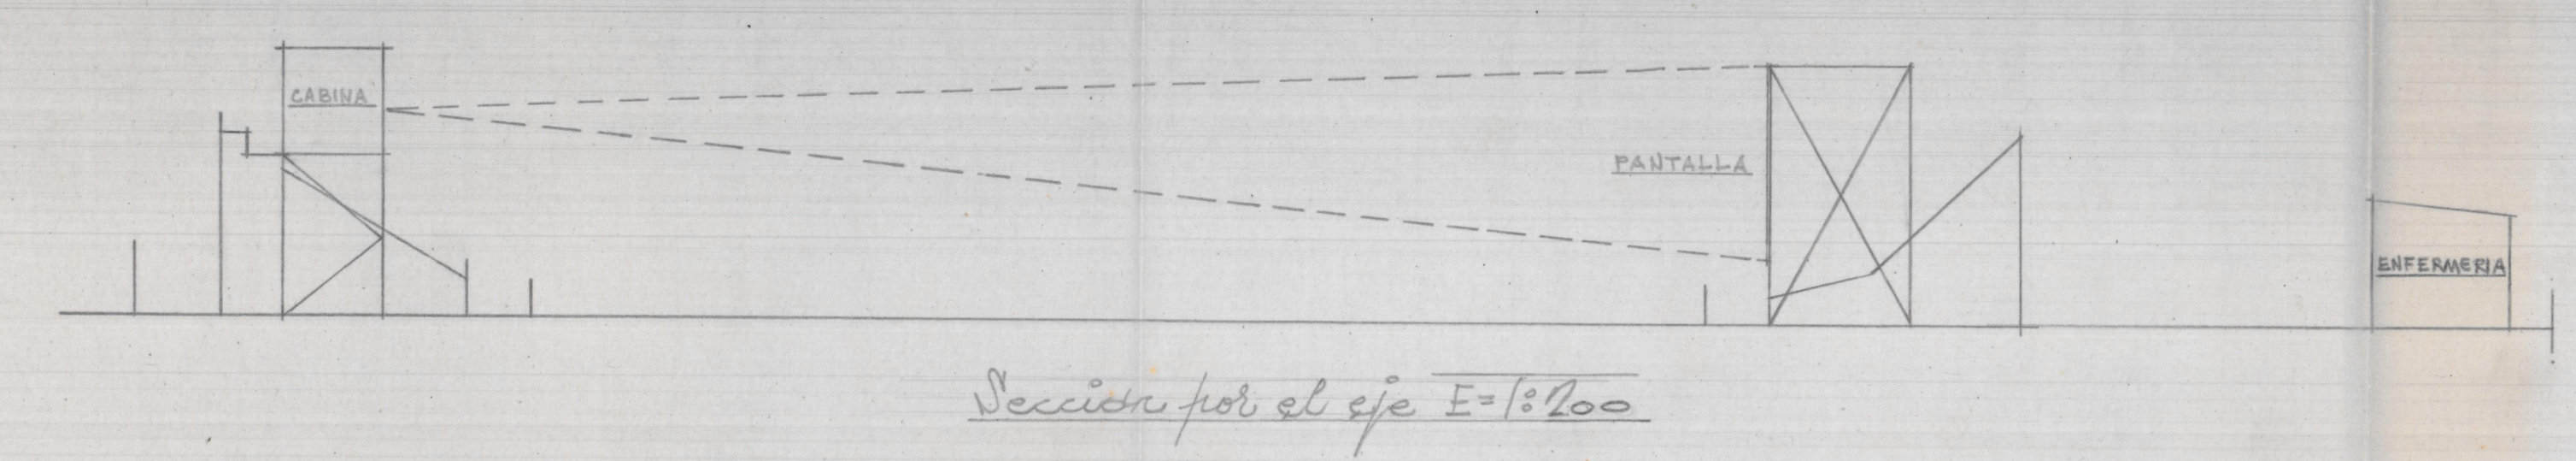 CABINA
PANTALLA
ENFERMERIA
Sección por el eje E=1:200